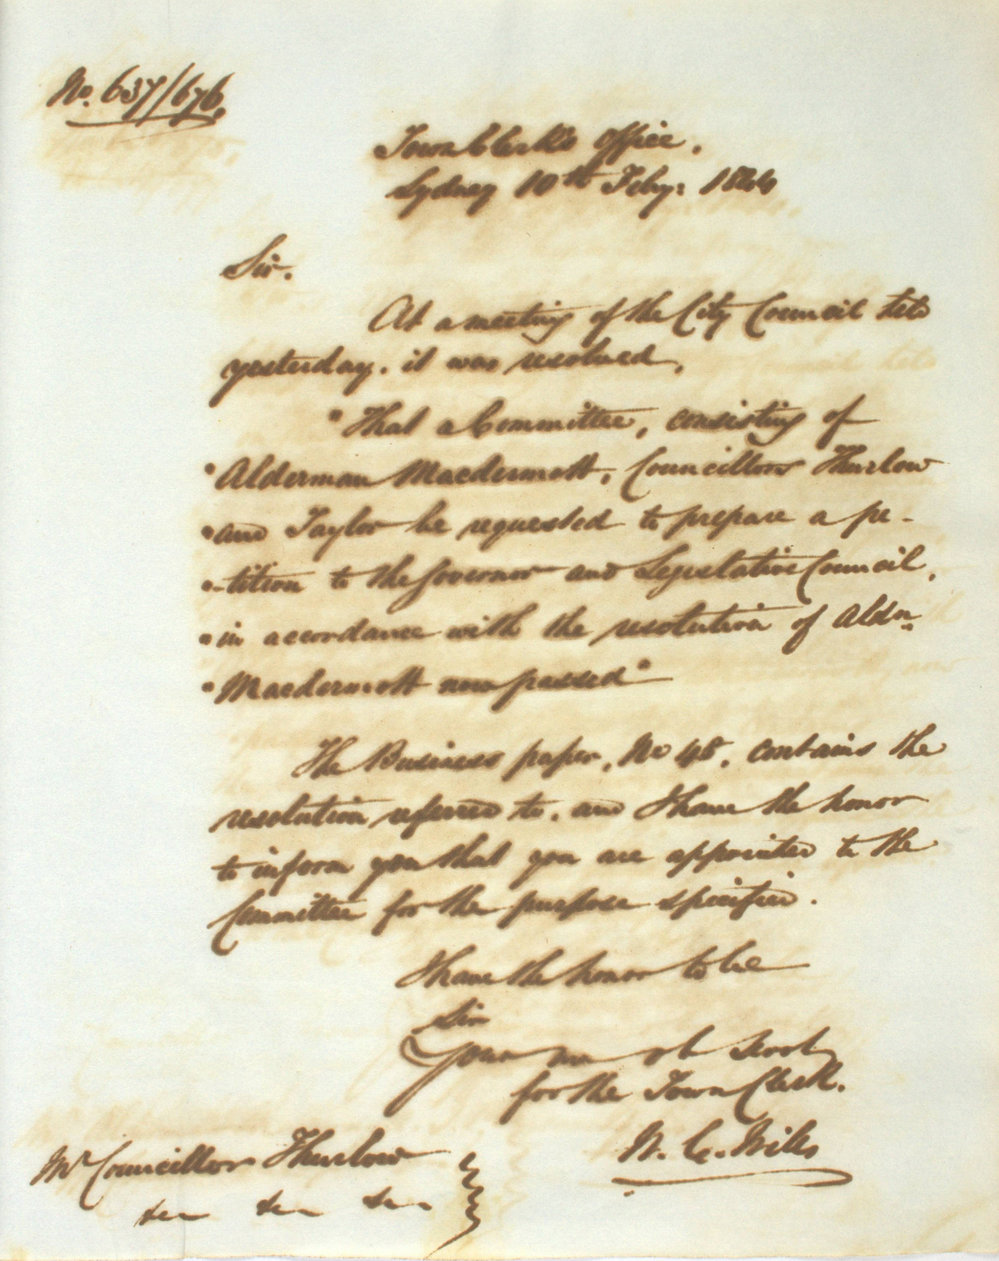 No. 637/676.
Town Clerk's Office.
Sydney 10th Feby: 1844
Sir.
At a meeting of the City Council held
yesterday. it was resolved,
"That a Committee, consisting of
"Alderman Macdermott, Councillors Thurlow
"and Taylor be requested to prepare a pe-
"-tition to the Governor and Legislative Council,
"in accordance with the resolution of Aldn.
"Macdermott now passed"
The Business paper, No 48, contains the
resolution referred to, and I have the honor
to inform you that you are appointed to the
Committee for the purpose specified.
I have the honor to be
Sir
Your mo ob Servt
for the Town Clerk.
W. C. Wills
Mr Councillor Thurlow
&c &c &c